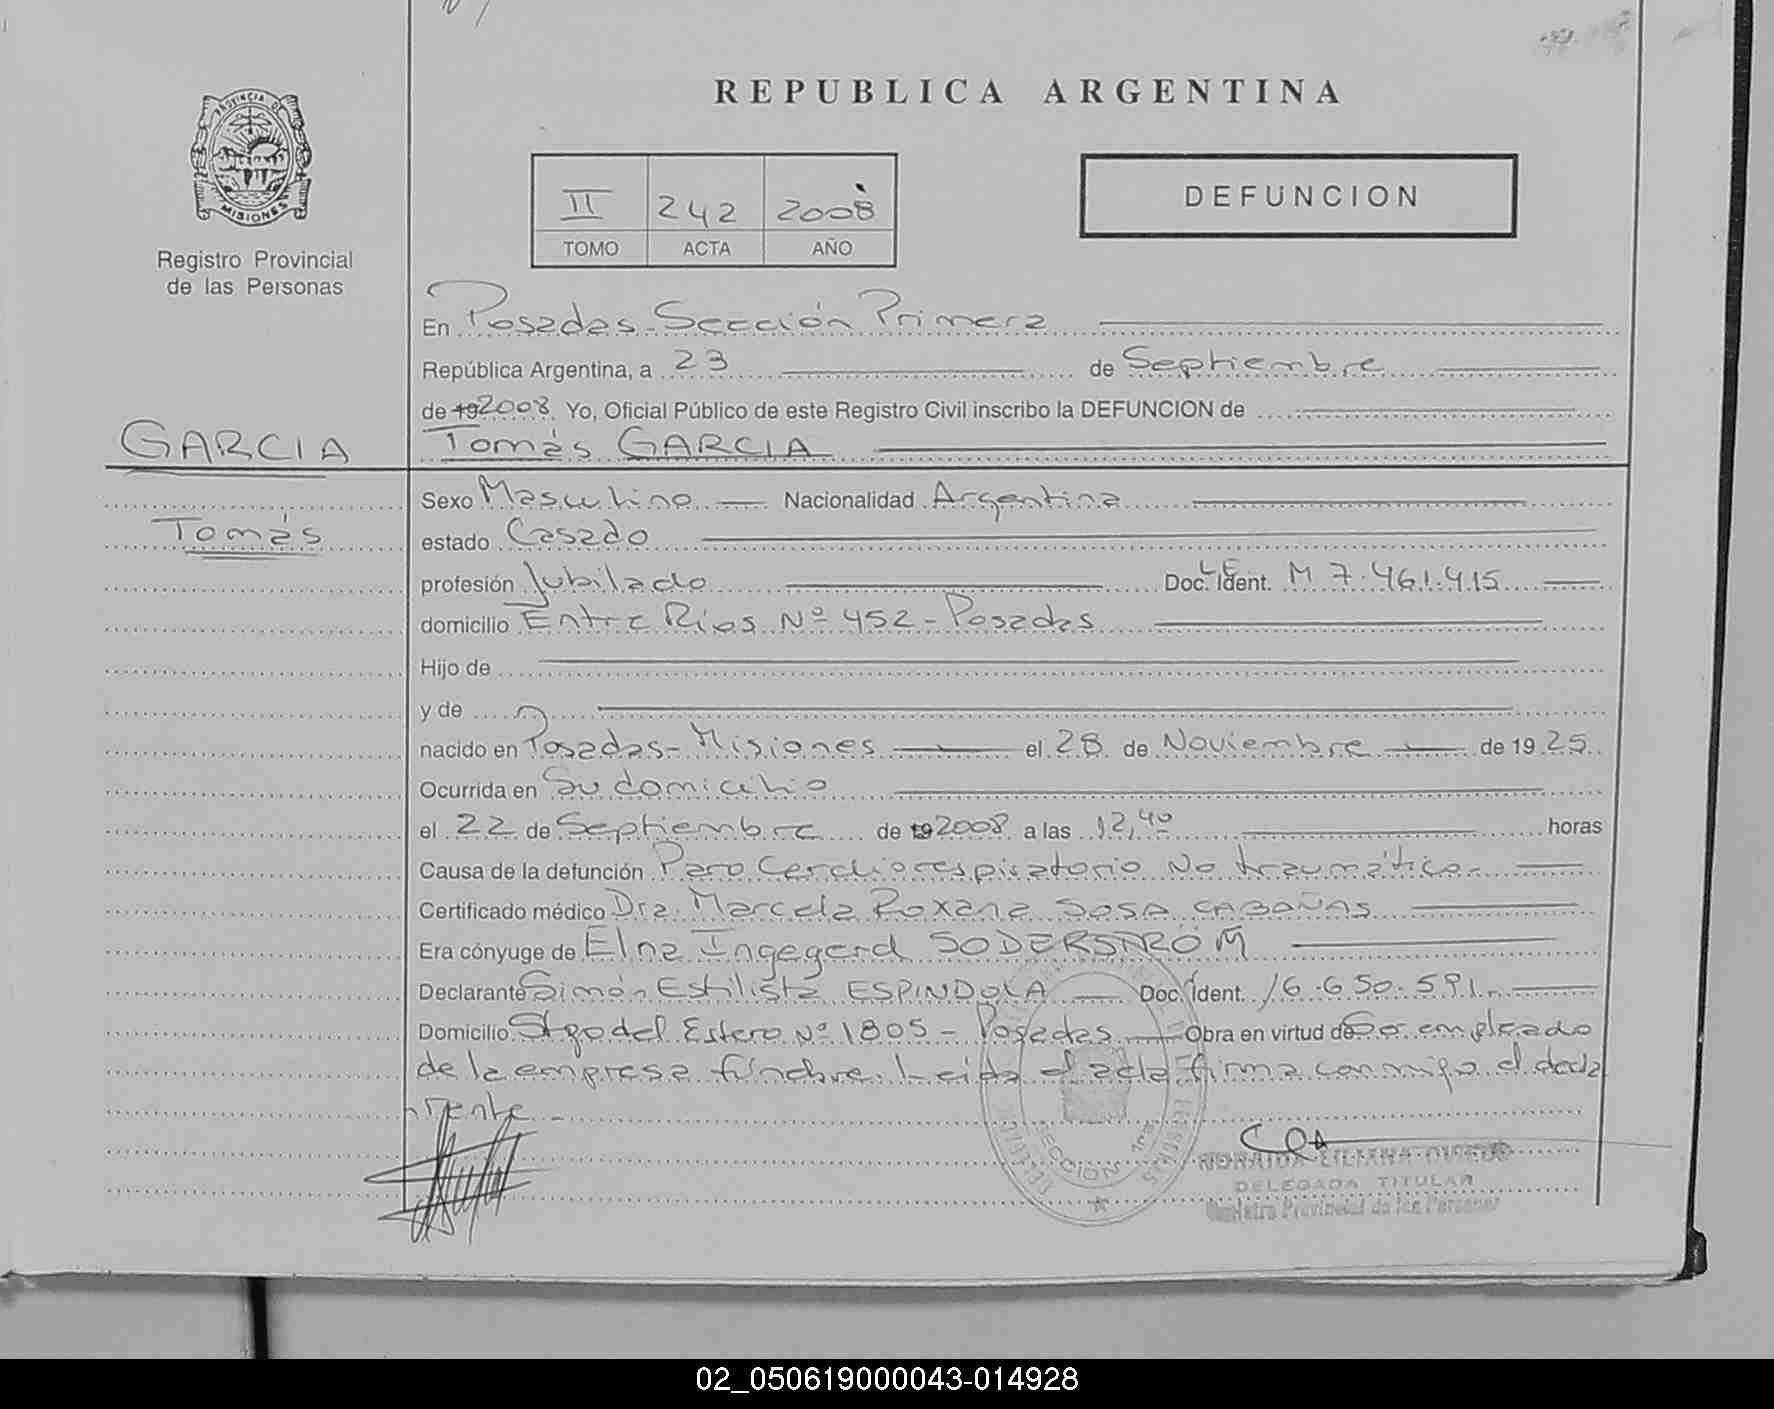 REPUBLICA ARGENTINA
PROVINCIA DE
MISIONES
Registro Provincial
de las Personas
II 242 2008
TOMO ACTA AÑO
DEFUNCION
En Posadas - Sección Primera
República Argentina, a 23 de Septiembre
de 19 2008 Yo, Oficial Público de este Registro Civil inscribo la DEFUNCION de
GARCIA
Tomás GARCIA
Tomás
Sexo Masculino Nacionalidad Argentina
estado Casado
profesión Jubilado Doc. Ident. L.E. M 7.461.415
domicilio Entre Ríos Nº 452 - Posadas
Hijo de
y de
nacido en Posadas - Misiones el 28 de Noviembre de 1925
Ocurrida en Su domicilio
el 22 de Septiembre de 19 2008 a las 12,40 horas
Causa de la defunción Paro Cardiorespiratorio No traumático.
Certificado médico Dra. Marcela Roxana SOSA CABAÑAS
Era cónyuge de Elna Ingegerd SODERSTRÖM
Declarante Simón Estilista ESPINDOLA Doc. Ident. 16.650.591
Domicilio Stgo del Estero Nº 1805 - Posadas Obra en virtud de Ser empleado
de la empresa fúnebre. Leída el acta firma conmigo el decla
rante
SECCION 1ra
LILIANA OVIEDO
DELEGADA TITULAR
Registro Provincial de las Personas
02_050619000043-014928